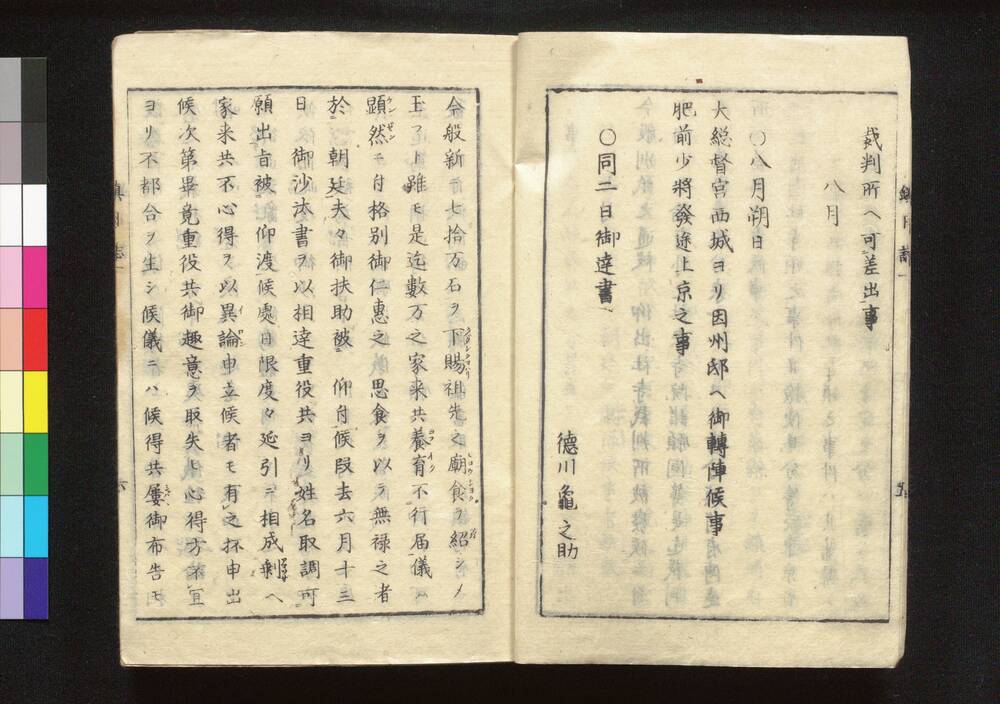 裁判所ヘ可差出事
八月
○八月朔日
大総督宮西城ヨリ因州邸ヘ御轉陣候事
肥前少將發途上京之事
○同二日御達書
德川龜之助
今般新ニ七拾万石ヲ下賜祖先之廟食ヲ紹シメ
玉フト雖モ是迄數万之家来共養育不行届儀
顕然ニ付格別御仁惠之 思食ヲ以テ無禄之者
於 朝廷夫々御扶助被 仰付候段去六月十三
日 御沙汰書ヲ以相達重役共ヨリ姓名取調可
願出旨被 仰渡候處日限度々延引ニ相成剰ヘ
家来共不心得ヲ以異論申立候者モ有之抔申出
候次第畢竟重役共御趣意ヲ取失ヒ心得方不宜
ヨリ不都合ヲ生シ候儀ニハ候得共屢御布告モ